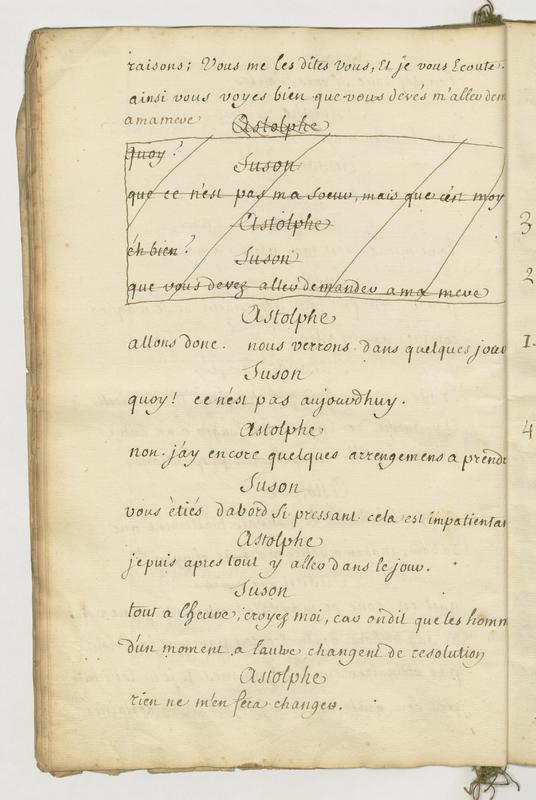 raisons; Vous me les dites vous, Et je vous Ecoute.
ainsi vous voyes bien que vous devés m'aller dem
a ma mere
Astolphe
quoy?
Suson
que ce n'est pas ma Soeur, mais que c'est moy
Astolphe
3
éh bien?
Suson
2
que vous devez aller demander a ma mere
Astolphe
allons donc. nous verrons dans quelques jour
1.
Suson
quoy! ce n'est pas aujourdhuy.
Astolphe
4
non. j'ay encore quelques arrengemens a prendr
Suson
vous ètiés dabord si pressant. cela est impatientan
Astolphe
je puis apres tout y aller dans le jour.
Suson
tout a lheure, croyez moi, car on dit que les homm
d'un moment a lautre changent de resolution
Astolphe
rien ne m'en fera changer.